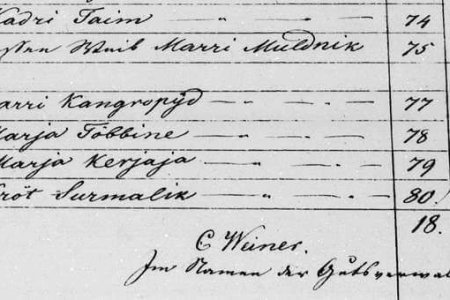 Kadri Taim — „ — — 74
essen Weib Marri Muldnik 75
arri Kangropüd — „ — „ — — 77
Marja Többine — „ — „ — — 78
Marja Kerjaja — „ — — 79
Kröt Surmalik — „ — „ — 80.
18.
C Weiner.
Im Namen der Gutsverwal